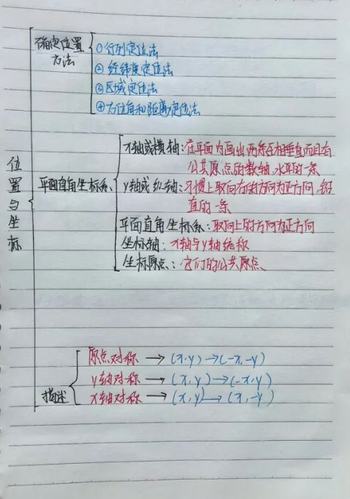 确定位置方法
①行列定位法
②经纬度定位法
③区域定位法
④方位角和距离定位法
位置与坐标
平面直角坐标系
x轴或横轴:在平面内画出两条互相垂直而且有
公共原点的数轴,水平的一条
y轴或纵轴:习惯上取向右的方向为正方向,铅
直的一条
平面直角坐标系:取向上的方向为正方向
坐标轴:x轴与y轴统称
坐标原点:它们的公共原点
描述
原点对称→(x,y)→(-x,-y)
y轴对称→(x,y)→(-x,y)
x轴对称→(x,y)→(x,-y)